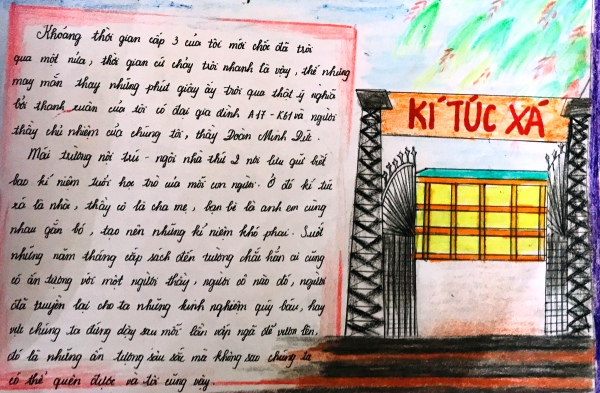 Khoảng thời gian cấp 3 của tôi mới chốc đã trôi
qua một nửa, thời gian cứ chảy trôi nhanh là vậy, thế nhưng
may mắn thay những phút giây ấy trôi qua thật ý nghĩa
bởi thanh xuân của tôi có đại gia đình A17 - K61 và người
thầy chủ nhiệm của chúng tôi, thầy Đoàn Minh Đức.
Mái trường nội trú - ngôi nhà thứ 2 nơi lưu giữ biết
bao kỉ niệm tuổi học trò của mỗi con người. Ở đó kí túc
xá là nhà, thầy cô là cha mẹ, bạn bè là anh em cùng
nhau gắn bó, tạo nên những kỉ niệm khó phai. Suốt
những năm tháng cắp sách đến trường chắc hẳn ai cũng
có ấn tượng với một người thầy, người cô nào đó, người
đã truyền lại cho ta những kinh nghiệm quý báu, hay
vực chúng ta đứng dậy sau mỗi lần vấp ngã để vươn lên,
đó là những ấn tượng sâu sắc mà không sao chúng ta
có thể quên được và tôi cũng vậy.
KÍ TÚC XÁ